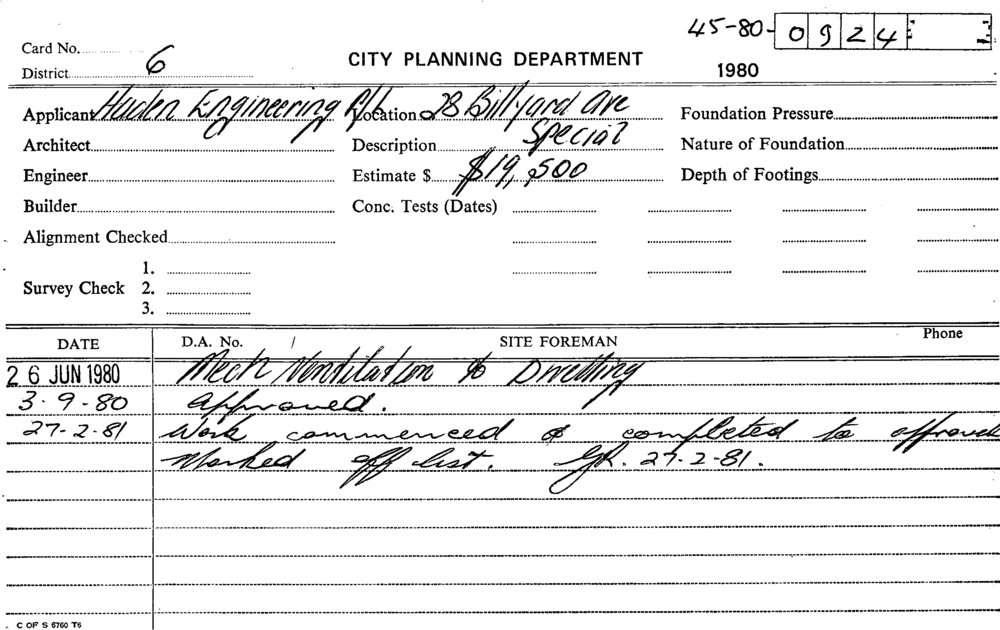 45-80-0924
Card No.
District 6
CITY PLANNING DEPARTMENT
1980
Applicant Haden Engineering P/L Location 28 Billyard Ave Foundation Pressure
Architect Description Special Nature of Foundation
Engineer Estimate $ $19,500 Depth of Footings
Builder Conc. Tests (Dates)
Alignment Checked
1.
Survey Check 2.
3.
DATE D.A. No. / SITE FOREMAN Phone
26 JUN 1980 Mech Ventilation to Dwelling
3.9.80 approved.
27-2-81 Work commenced & completed to
Marked off list. 27.2.81.
C OF S 6760 T6